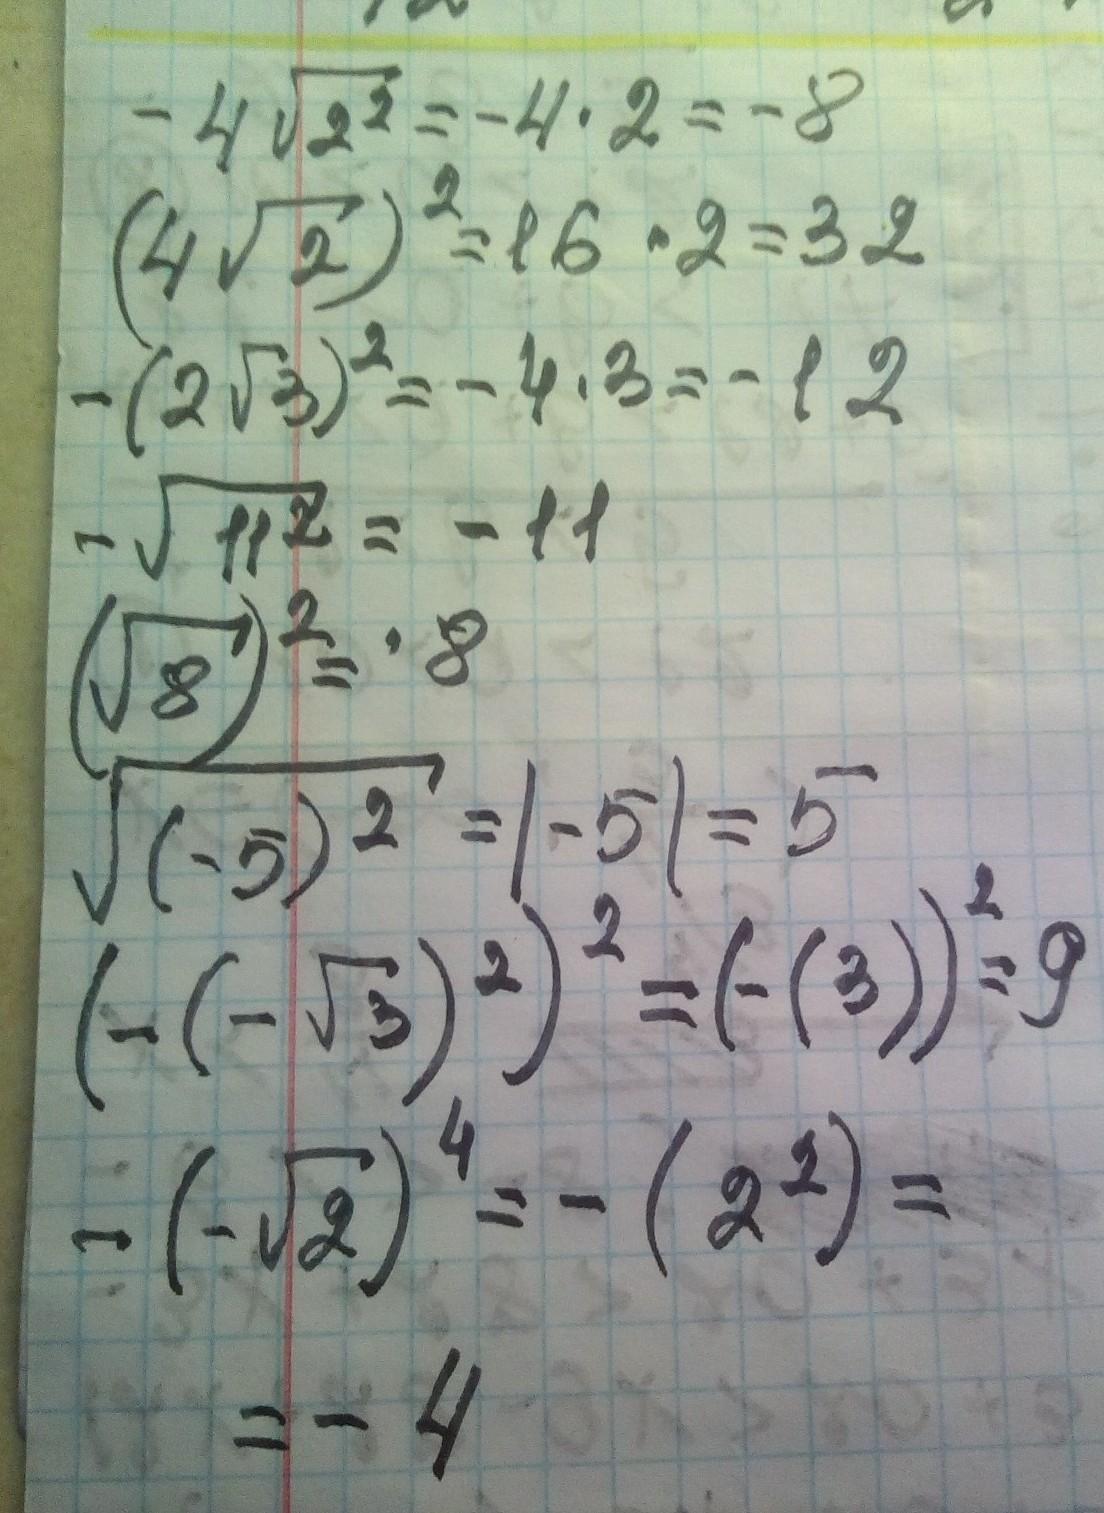 -4√2² = -4·2 = -8
(4√2)² = 16·2 = 32
-(2√3)² = -4·3 = -12
-√11² = -11
(√8)² = ·8
√(-5)² = |-5| = 5
(-(-√3)²)² = (-(3))² = 9
-(-√2)⁴ = -(2²) =
= -4